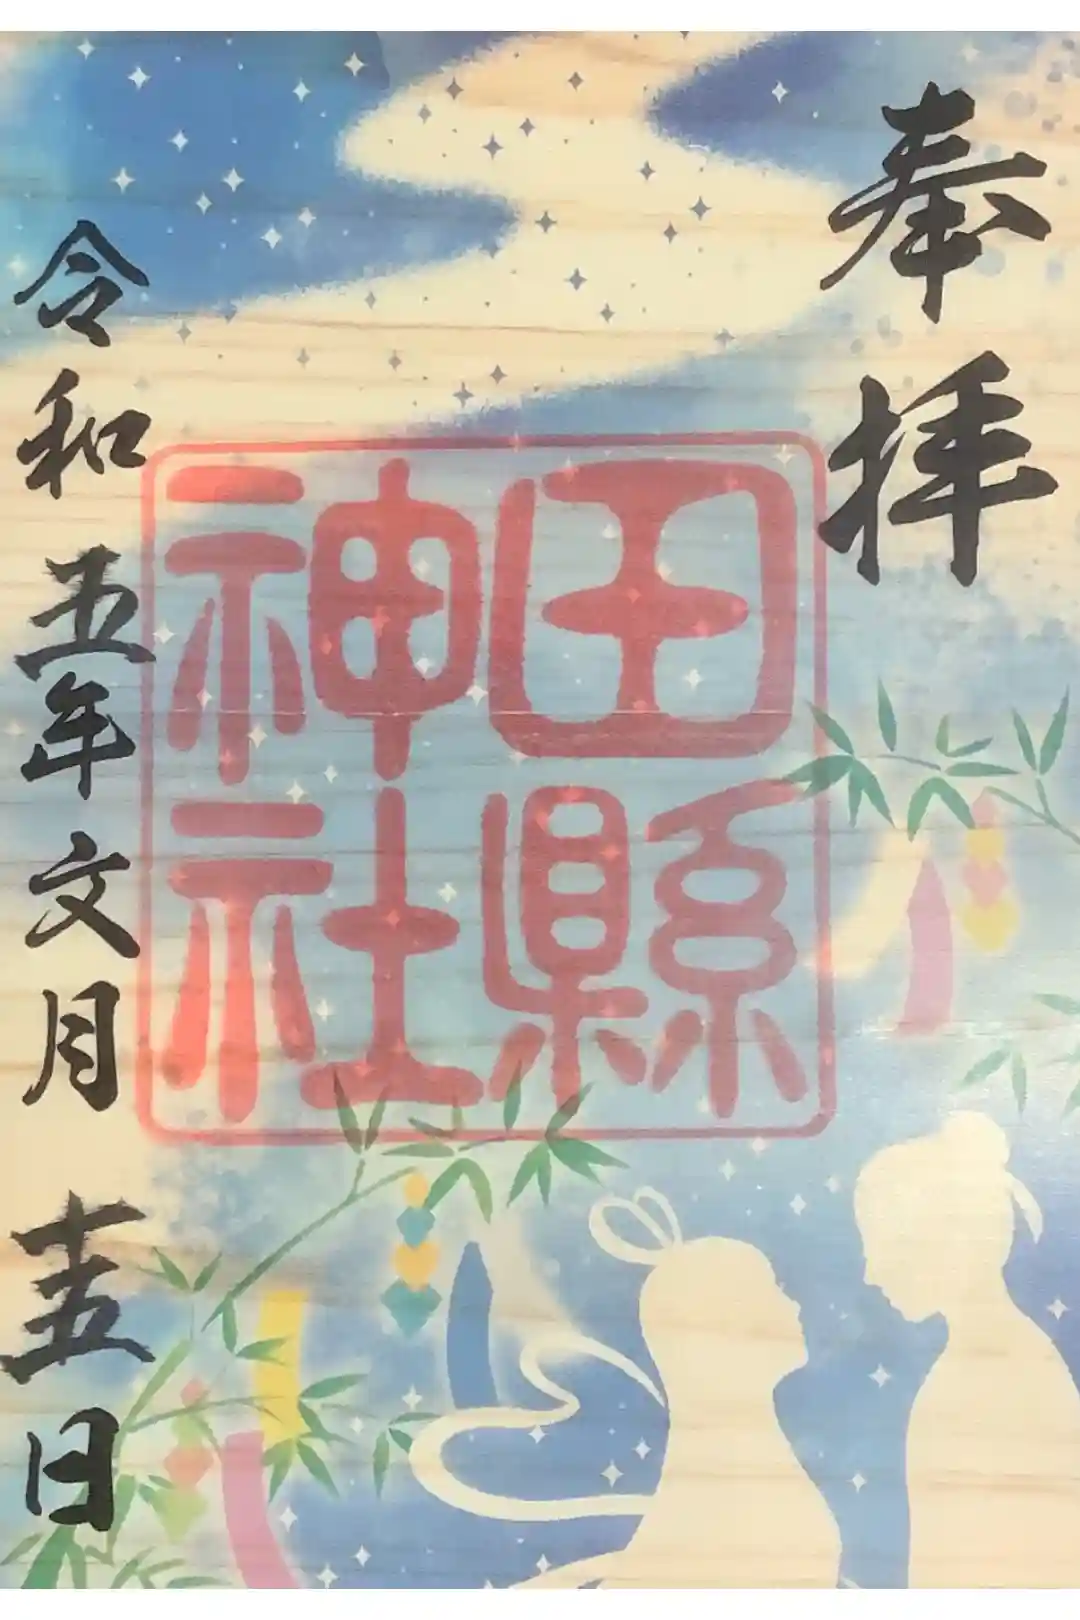 奉拝
田縣
神社
令和五年文月十五日